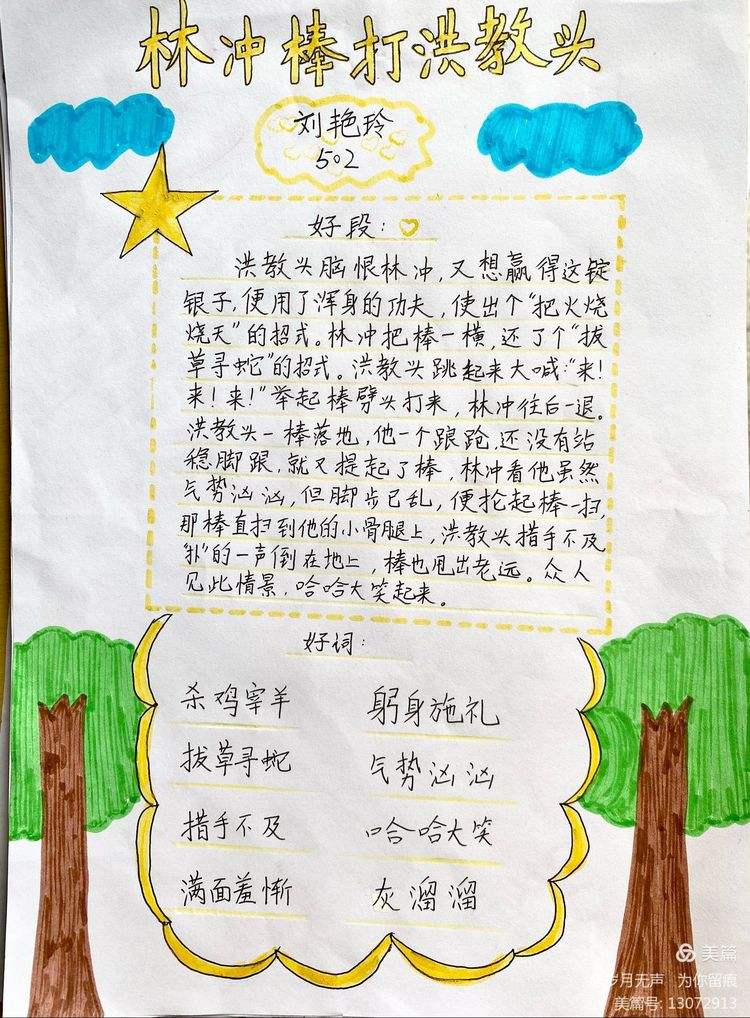 林冲棒打洪教头
刘艳玲
502
好段：
洪教头脑恨林冲，又想赢得这锭
银子，便用了浑身的功夫，使出个“把火烧
烧天”的招式。林冲把棒一横，还了个“拔
草寻蛇”的招式。洪教头跳起来大喊：“来！
来！来！”举起棒劈头打来，林冲往后一退。
洪教头一棒落地，他一个踉跄，还没有站
稳脚跟，就又提起了棒，林冲看他虽然
气势汹汹，但脚步已乱，便抡起棒一扫，
那棒直扫到他的小骨腿上，洪教头措手不及
“扑”的一声倒在地上，棒也甩出老远。众人
见此情景，哈哈大笑起来。
好词：
杀鸡宰羊 躬身施礼
拔草寻蛇 气势汹汹
措手不及 哈哈大笑
满面羞惭 灰溜溜
美篇
岁月无声 为你留痕
美篇号: 13072913